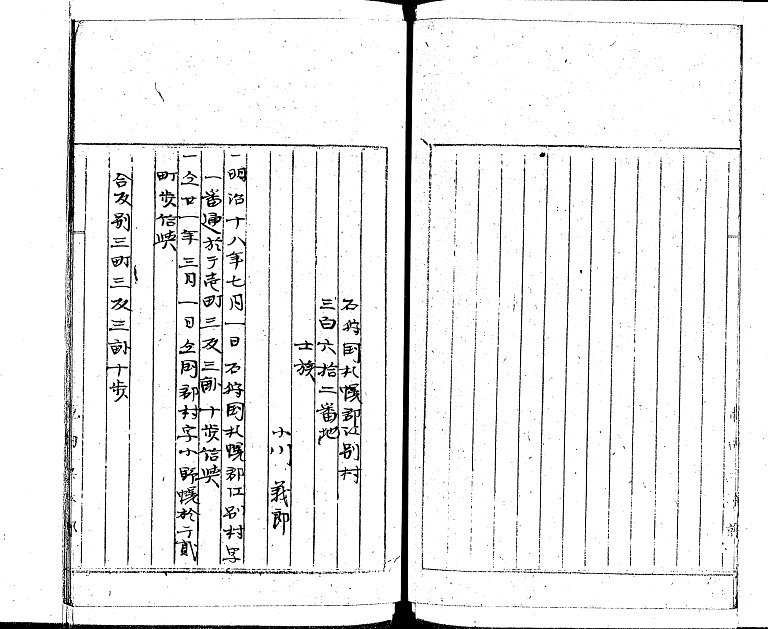 石狩国札幌郡江別村
三百六拾二番地
士族
小川 義郎
一明治十八年七月一日石狩国札幌郡江別村字
一番通於テ壱町三反三畝十歩給與
一仝廿一年三月一日仝国郡村字小野幌於テ貳
町歩給與
合反別三町三反三畝十歩